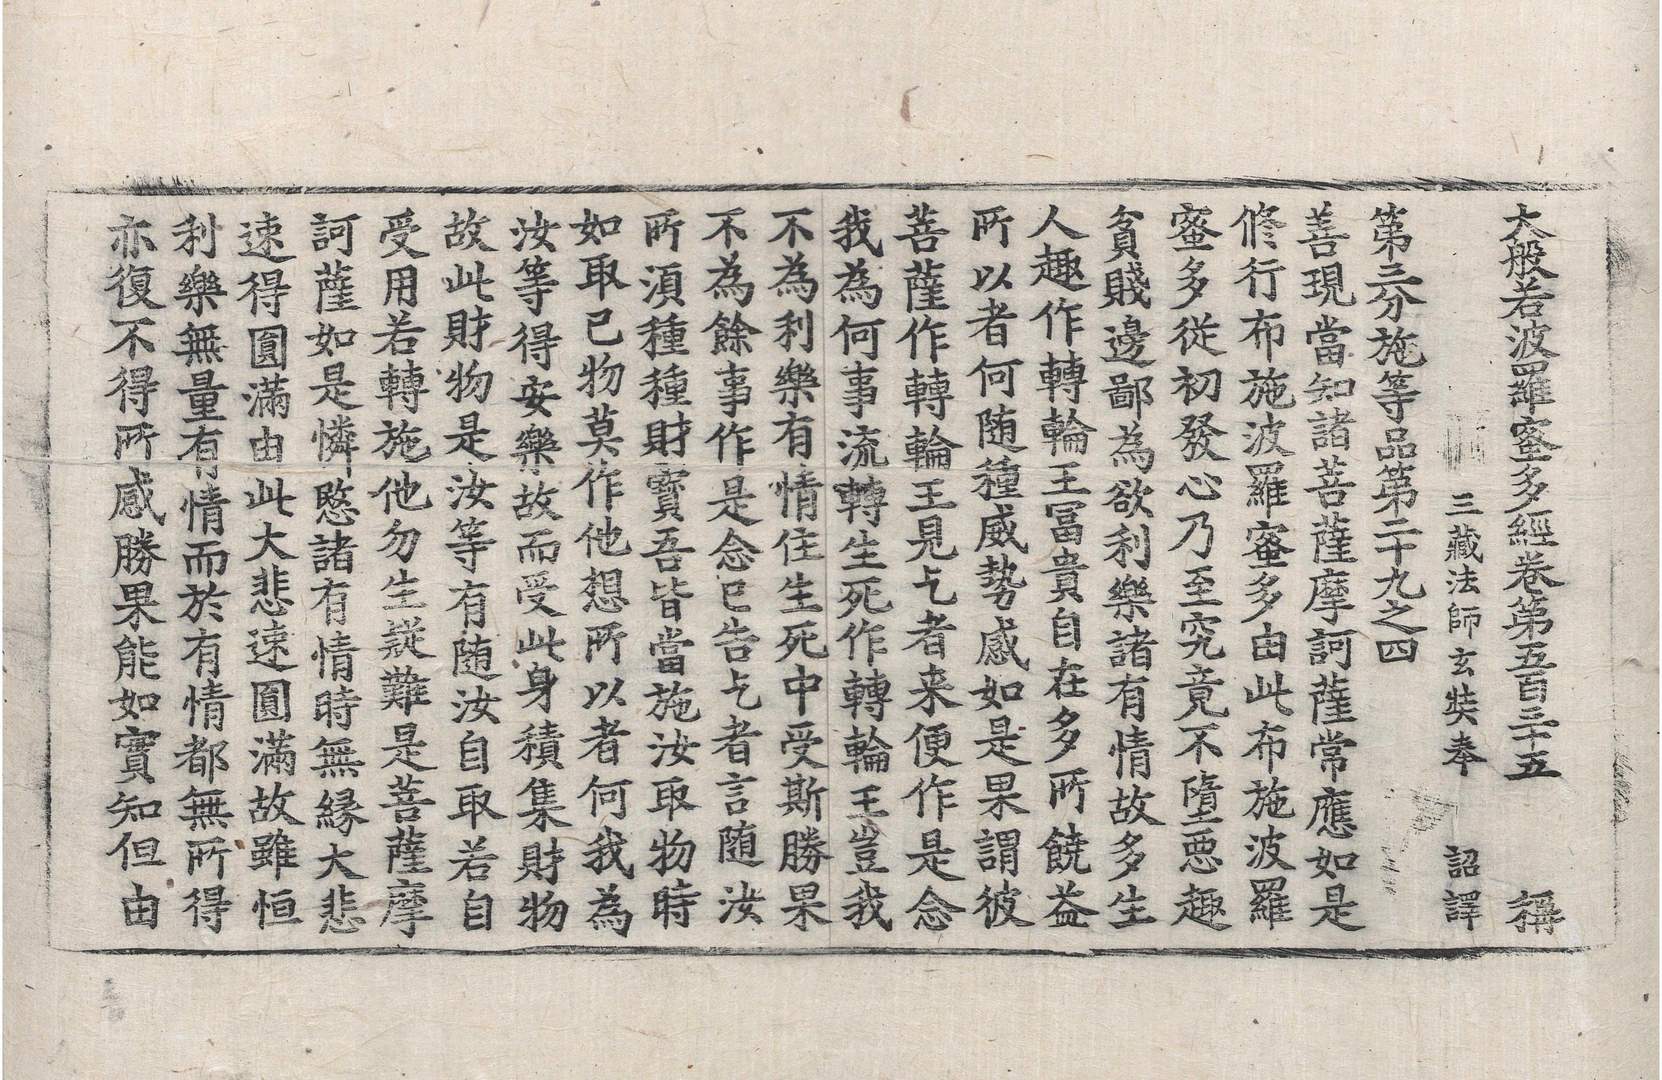 大般若波羅蜜多經卷第五百三十五 稱
三藏法師玄奘奉 詔譯
第三分施等品第二十九之四
善現當知諸菩薩摩訶薩常應如是
修行布施波羅蜜多由此布施波羅
蜜多從初發心乃至究竟不墮惡趣
貧賤邊鄙為欲利樂諸有情故多生
人趣作轉輪王冨貴自在多所饒益
所以者何随種威勢感如是果謂彼
菩薩作轉輪王見乞者来便作是念
我為何事流轉生死作轉輪王豈我
不為利樂有情住生死中受斯勝果
不為餘事作是念已告乞者言随汝
所湏種種財寶吾皆當施汝取物時
如取已物莫作他想所以者何我為
汝等得安樂故而受此身積集財物
故此財物是汝等有随汝自取若自
受用若轉施他勿生疑難是菩薩摩
訶薩如是憐愍諸有情時無緣大悲
速得圓滿由此大悲速圓滿故雖恒
利樂無量有情而於有情都無所得
亦復不得所感勝果能如實知但由